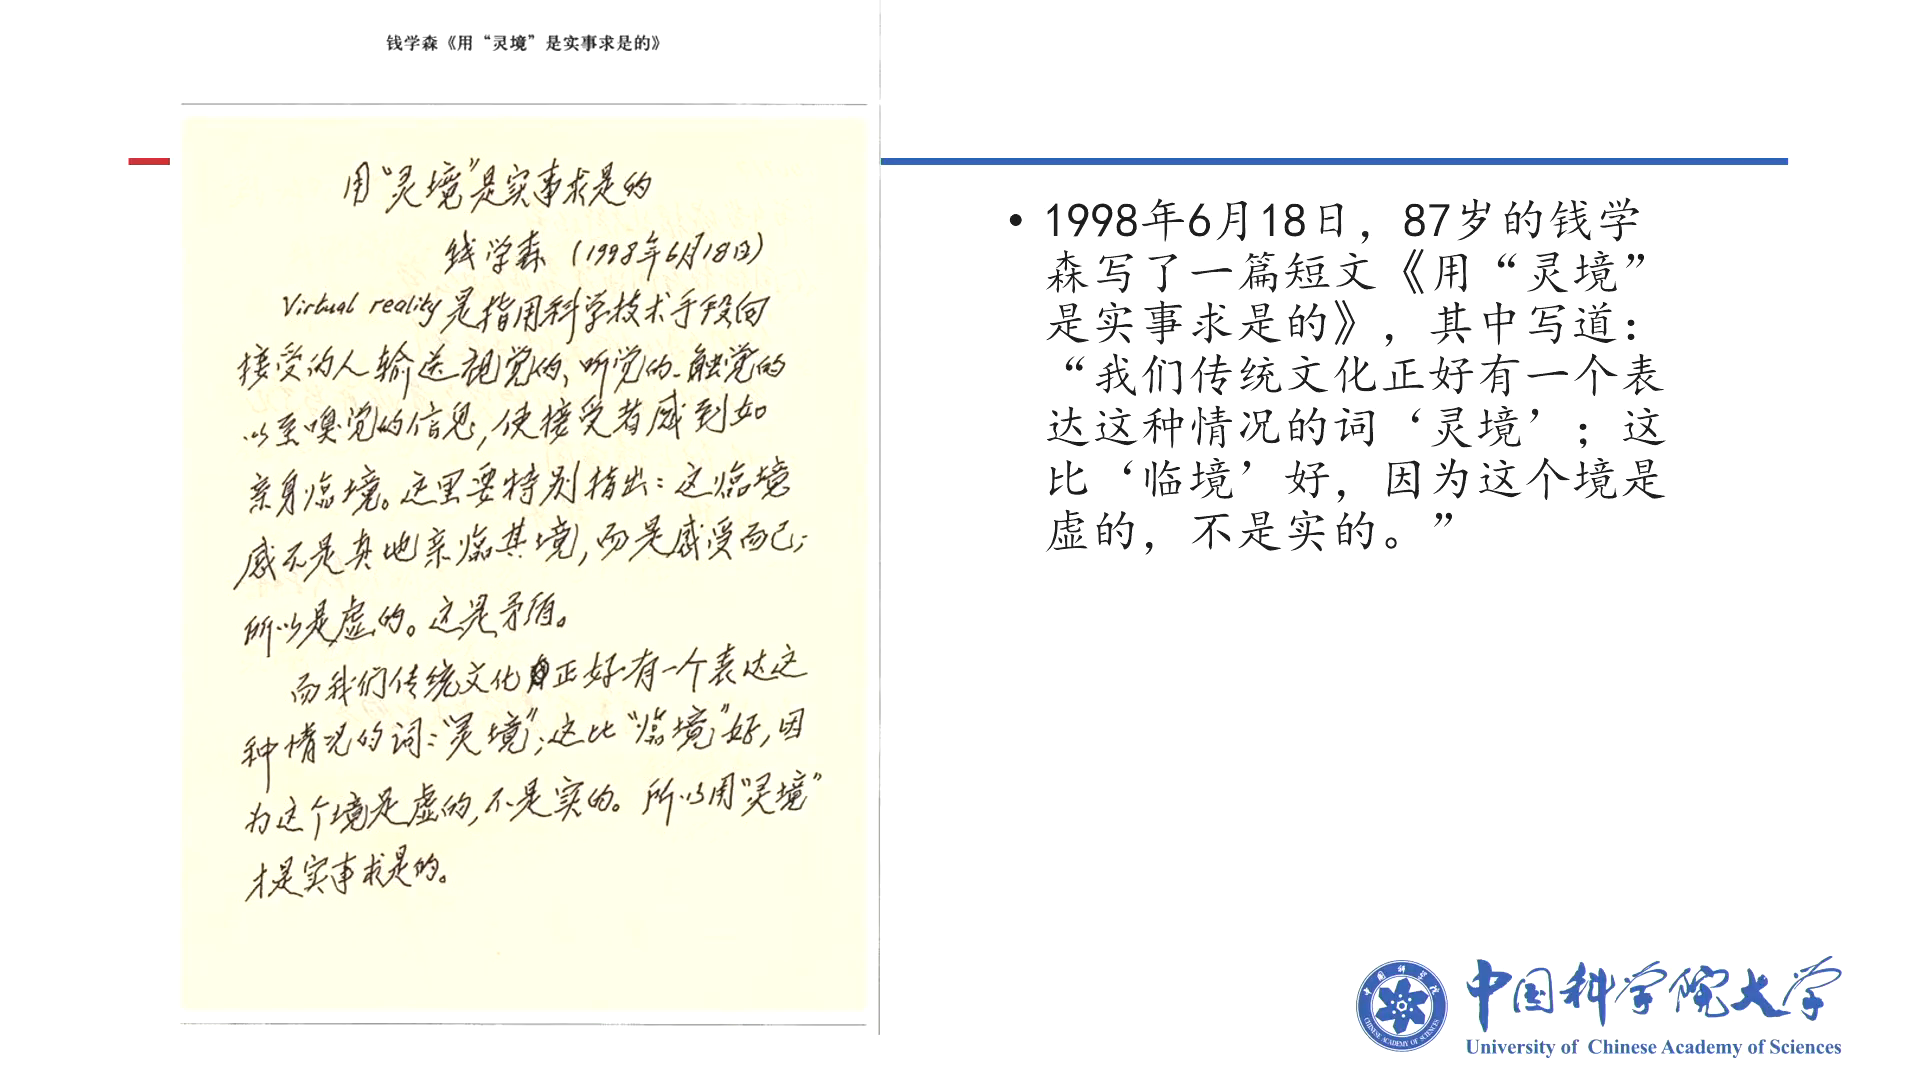 钱学森《用“灵境”是实事求是的》
用“灵境”是实事求是的
钱学森（1998年6月18日）
Virtual reality是指用科学技术手段向
接受的人输送视觉的、听觉的、触觉的
以至嗅觉的信息，使接受者感到如
亲身临境。这里要特别指出：这临境
感不是真地亲临其境，而是感受而已；
所以是虚的。这是矛盾。
而我们传统文化正好有一个表达这
种情况的词：“灵境”；这比“临境”好，因
为这个境是虚的，不是实的。所以用“灵境”
才是实事求是的。
• 1998年6月18日，87岁的钱学
森写了一篇短文《用“灵境”
是实事求是的》，其中写道：
“我们传统文化正好有一个表
达这种情况的词‘灵境’；这
比‘临境’好，因为这个境是
虚的，不是实的。”
中国科学院大学
CHINESE ACADEMY OF SCIENCES
中国科学院大学
University of Chinese Academy of Sciences